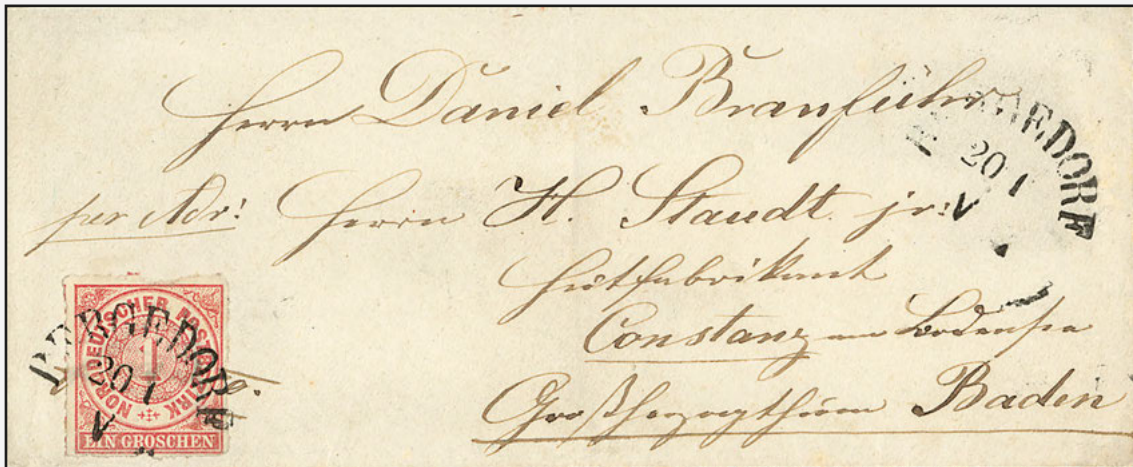 Herrn Daniel Branführ
per Adr: Herrn H. Staudt jr:
Hutfabrikant
Constanz am Bodensee
Großherzogthum Baden
BERGEDORF
20 1
V
NORDDEUTSCHER POSTBEZIRK
1
EIN GROSCHEN
BERGEDORF
20 1
V